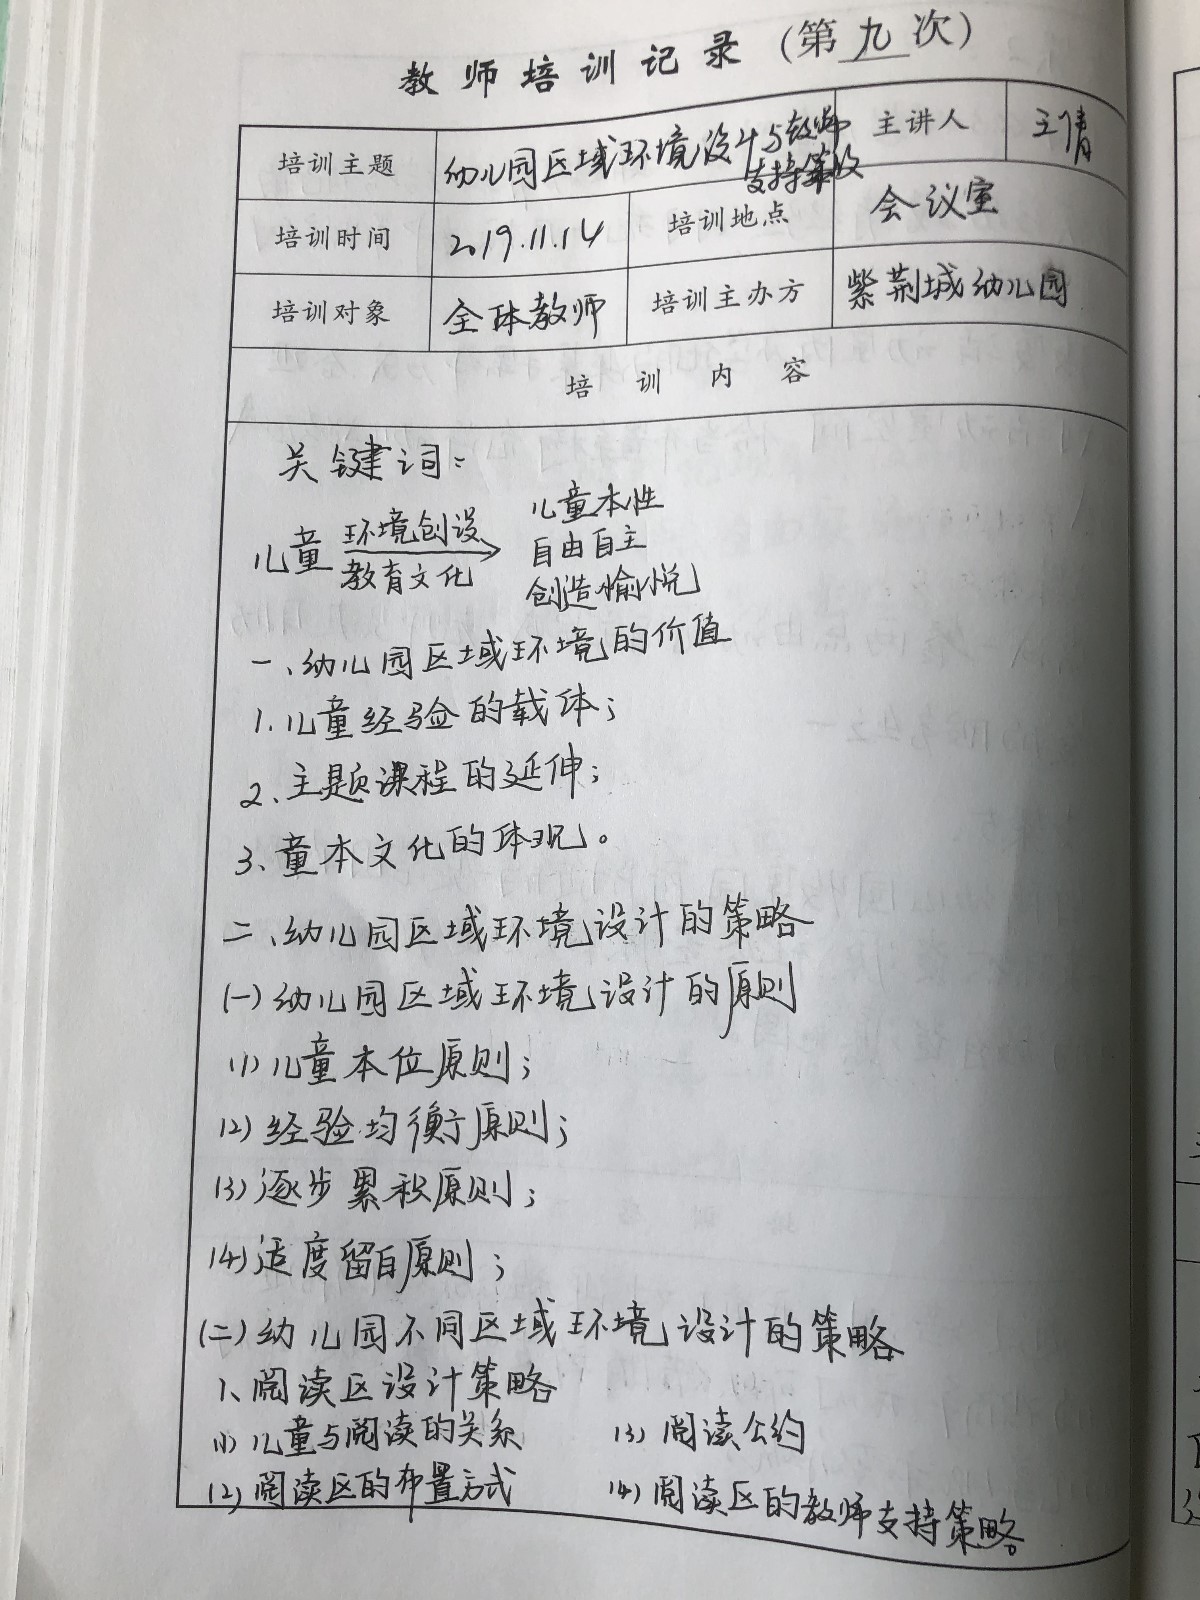 教师培训记录（第九次）
培训主题 幼儿园区域环境设计与教师支持策略 主讲人 王倩
培训时间 2019.11.14 培训地点 会议室
培训对象 全体教师 培训主办方 紫荆城幼儿园
培训内容
关键词：
儿童 环境创设 教育文化 儿童本性
自由自主
创造愉悦
一、幼儿园区域环境的价值
1.儿童经验的载体；
2、主题课程的延伸；
3、童本文化的体现。
二、幼儿园区域环境设计的策略
(一)幼儿园区域环境设计的原则
(1)儿童本位原则；
(2)经验均衡原则；
(3)逐步累积原则；
(4)适度留白原则；
(二)幼儿园不同区域环境设计的策略
1、阅读区设计策略
(1)儿童与阅读的关系 (3)阅读公约
(2)阅读区的布置方式 (4)阅读区的教师支持策略